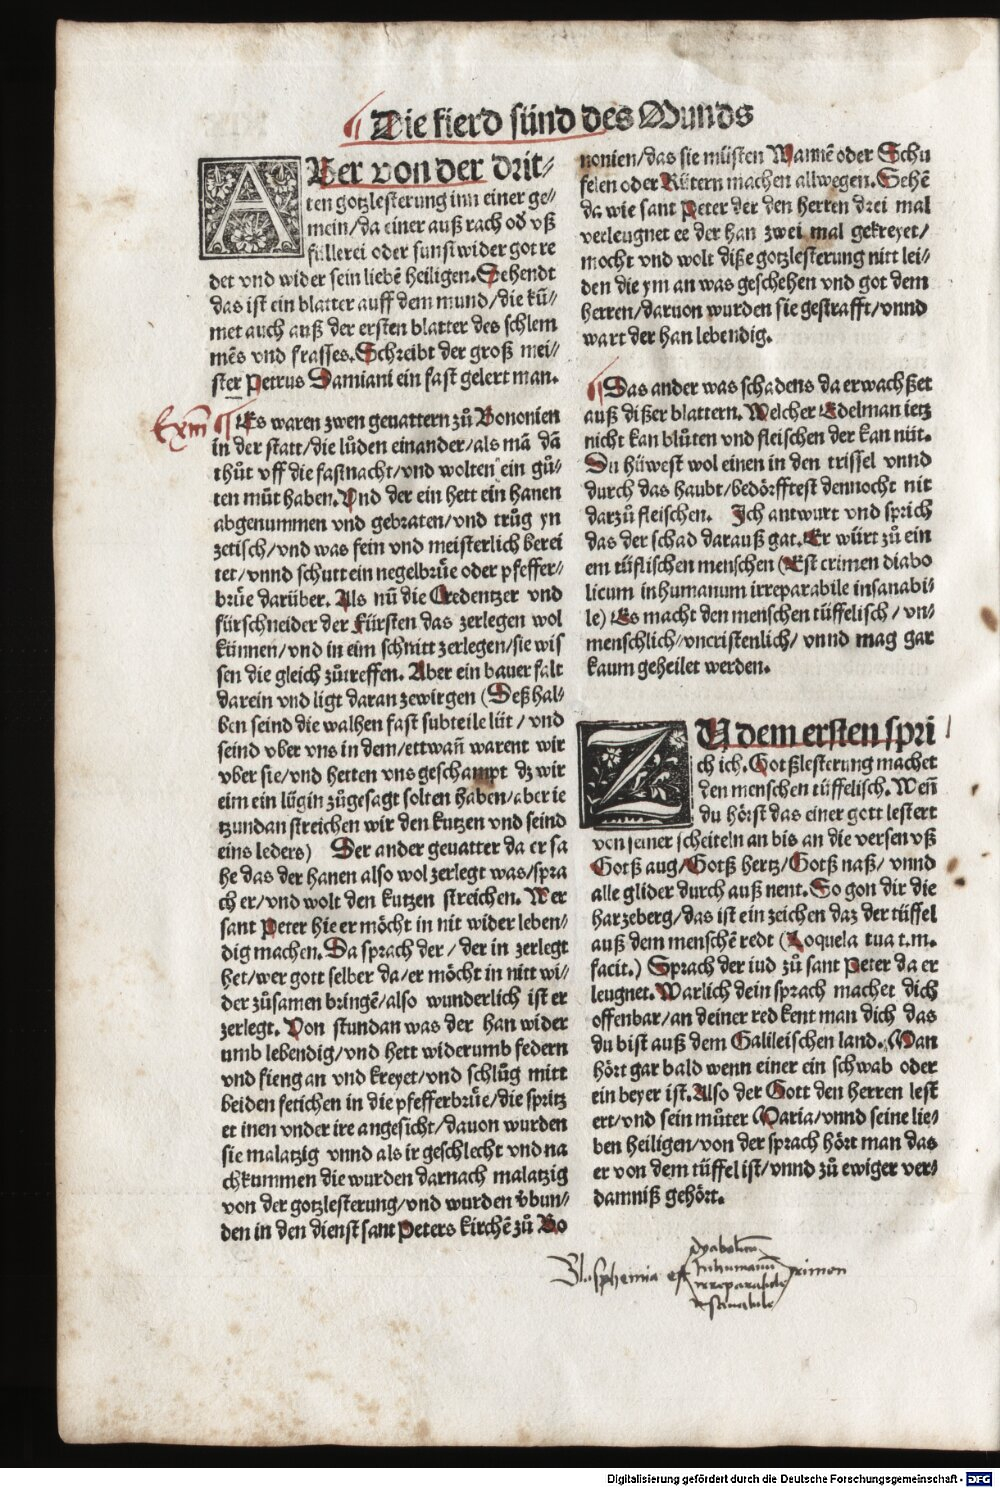 Die fierd sünd des Munds
ABer von der drit⸗
ten gotzlesterung inn einer ge⸗
mein/da einer auß rach od vß
füllerei oder sunst wider got re
det vnd wider sein liebē heiligen. Sehendt
das ist ein blatter auff dem mund/die kū⸗
met auch auß der ersten blatter des schlem
mēs vnd frasses. Schreibt der groß mei⸗
ster Petrus Damiani ein fast gelert man.
Exm
Es waren zwen geuattern zů Bononien
in der statt/die lůden einander/als mā dā
thůt vff die fastnacht/vnd wolten ein gů⸗
ten můt haben. Vnd der ein hett ein hanen
abgenummen vnd gebraten/vnd trůg yn
zetisch/vnd was fein vnd meisterlich berei
tet/vnnd schutt ein negelbrüe oder pfeffer⸗
brüe darüber. Als nū die Credentzer vnd
fürschneider der Fürsten das zerlegen wol
künnen/vnd in eim schnitt zerlegen/sie wis
sen die gleich zůtreffen. Aber ein bauer falt
darein vnd ligt daran zewirgen (Deßhal⸗
ben seind die walhen fast subteile lüt/vnd
seind vber vns in dem/ettwañ warent wir
vber sie/vnd hetten vns geschampt dz wir
eim ein lügin zůgesagt solten haben/aber ie
tzundan streichen wir den kutzen vnd seind
eins leders) Der ander geuatter da er sa
he das der hanen also wol zerlegt was/spra
ch er/vnd wolt den kutzen streichen. Wer
sant Peter hie er möcht in nit wider leben⸗
dig machen. Da sprach der/der in zerlegt
het/wer gott selber da/er möcht in nitt wi⸗
der zůsamen bringē/also wunderlich ist er
zerlegt. Von stundan was der han wider
umb lebendig/vnd hett widerumb federn
vnd fieng an vnd kreyet/vnd schlůg mitt
beiden fetichen in die pfefferbrüe/die spritz
et inen vnder ire angesicht/dauon wurden
sie malatzig vnnd als ir geschlecht vnd na
chkummen die wurden darnach malatzig
von der gotzlesterung/vnd wurden v̈bun⸗
den in den dienst sant Peters kirchē zů Bo
nonien/das sie müsten Wannē oder Schu
felen oder Rütern machen allwegen. Sehē
da wie sant Peter der den herren drei mal
verleugnet ee der han zwei mal gekreyet/
mocht vnd wolt diße gotzlesterung nitt lei⸗
den die ym an was geschehen vnd got dem
herren/daruon wurden sie gestrafft/vnnd
wart der han lebendig.
Das ander was schadens da erwachßet
auß dißer blattern. Welcher Edelman ietz
nicht kan blůten vnd fleischen der kan nüt.
Du hüwest wol einen in den trissel vnnd
durch das haubt/bedörfftest dennocht nit
darzů fleischen. Ich antwurt vnd sprich
das der schad darauß gat. Er würt zů ein
em tüflischen menschen (Est crimen diabo
licum inhumanum irreparabile insanabi⸗
le) Es macht den menschen tüffelisch/vn⸗
menschlich/vncristenlich/vnnd mag gar
kaum geheilet werden.
ZU dem ersten spri
ch ich. Gotßlesterung machet
den menschen tüffelisch. Weñ
du hörst das einer gott lestert
von seiner scheiteln an bis an die versen vß
Gotß aug/Gotß hertz/Gotß naß/vnnd
alle glider durch auß nent. So gon dir die
har zeberg/das ist ein zeichen daz der tüffel
auß dem menschē redt (Loquela tua t.m.
facit.) Sprach der iud zů sant Peter da er
leugnet. Warlich dein sprach machet dich
offenbar/an deiner red kent man dich das
du bist auß dem Galileischen land. Man
hört gar bald wenn einer ein schwab oder
ein beyer ist. Also der Gott den herren lest
ert/vnd sein můter Maria/vnnd seine lie⸗
ben heiligen/von der sprach hört man das
er von dem tüffel ist/vnnd zů ewiger ver⸗
damniß gehört.
Blasphemia est
dyabolicū
Inhumanū
irreparabile
crimen
Digitalisierung gefördert durch die Deutsche Forschungsgemeinschaft - DFG